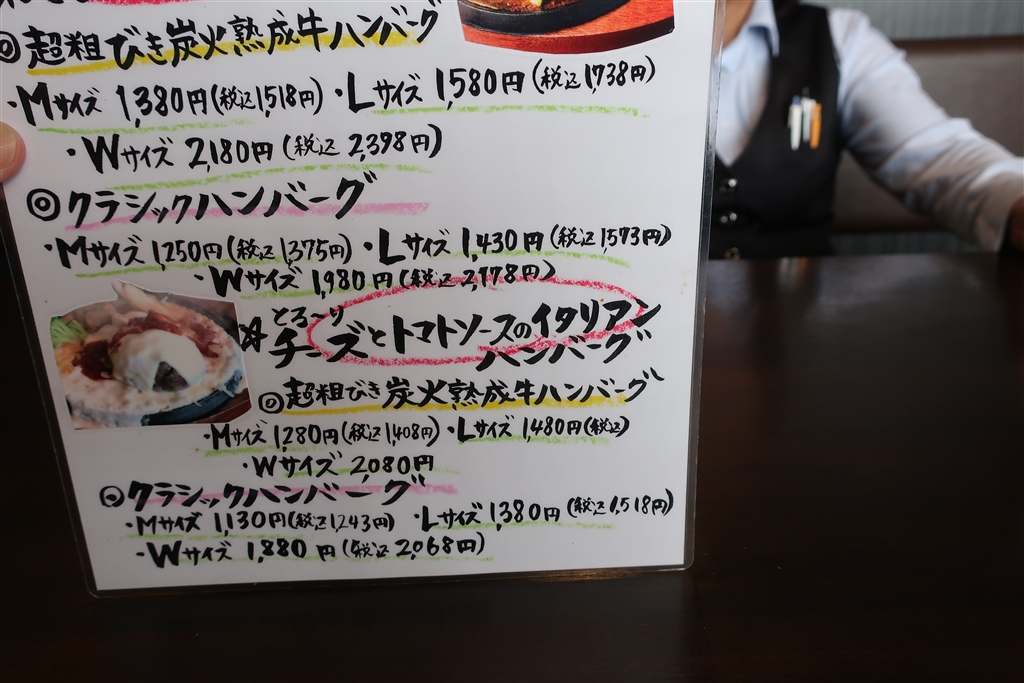 ◎超粗びき炭火熟成牛ハンバーグ
・Mサイズ 1,380円(税込1,518円)・Lサイズ 1580円(税込1,738円)
・Wサイズ 2180円(税込2,398円)
◎クラシックハンバーグ
・Mサイズ 1,250円(税込1,375円)・Lサイズ 1,430円(税込1573円)
・Wサイズ 1,980円(税込2,178円)
☆とろ〜り
チーズとトマトソースのイタリアン
ハンバーグ
◎超粗びき炭火熟成牛ハンバーグ
・Mサイズ 1,280円(税込1,408円)・Lサイズ 1,480円(税込)
・Wサイズ 2,080円
◎クラシックハンバーグ
・Mサイズ 1130円(税込1,243円)・Lサイズ 1,380円(税込1,518円)
・Wサイズ 1,880円(税込2,068円)